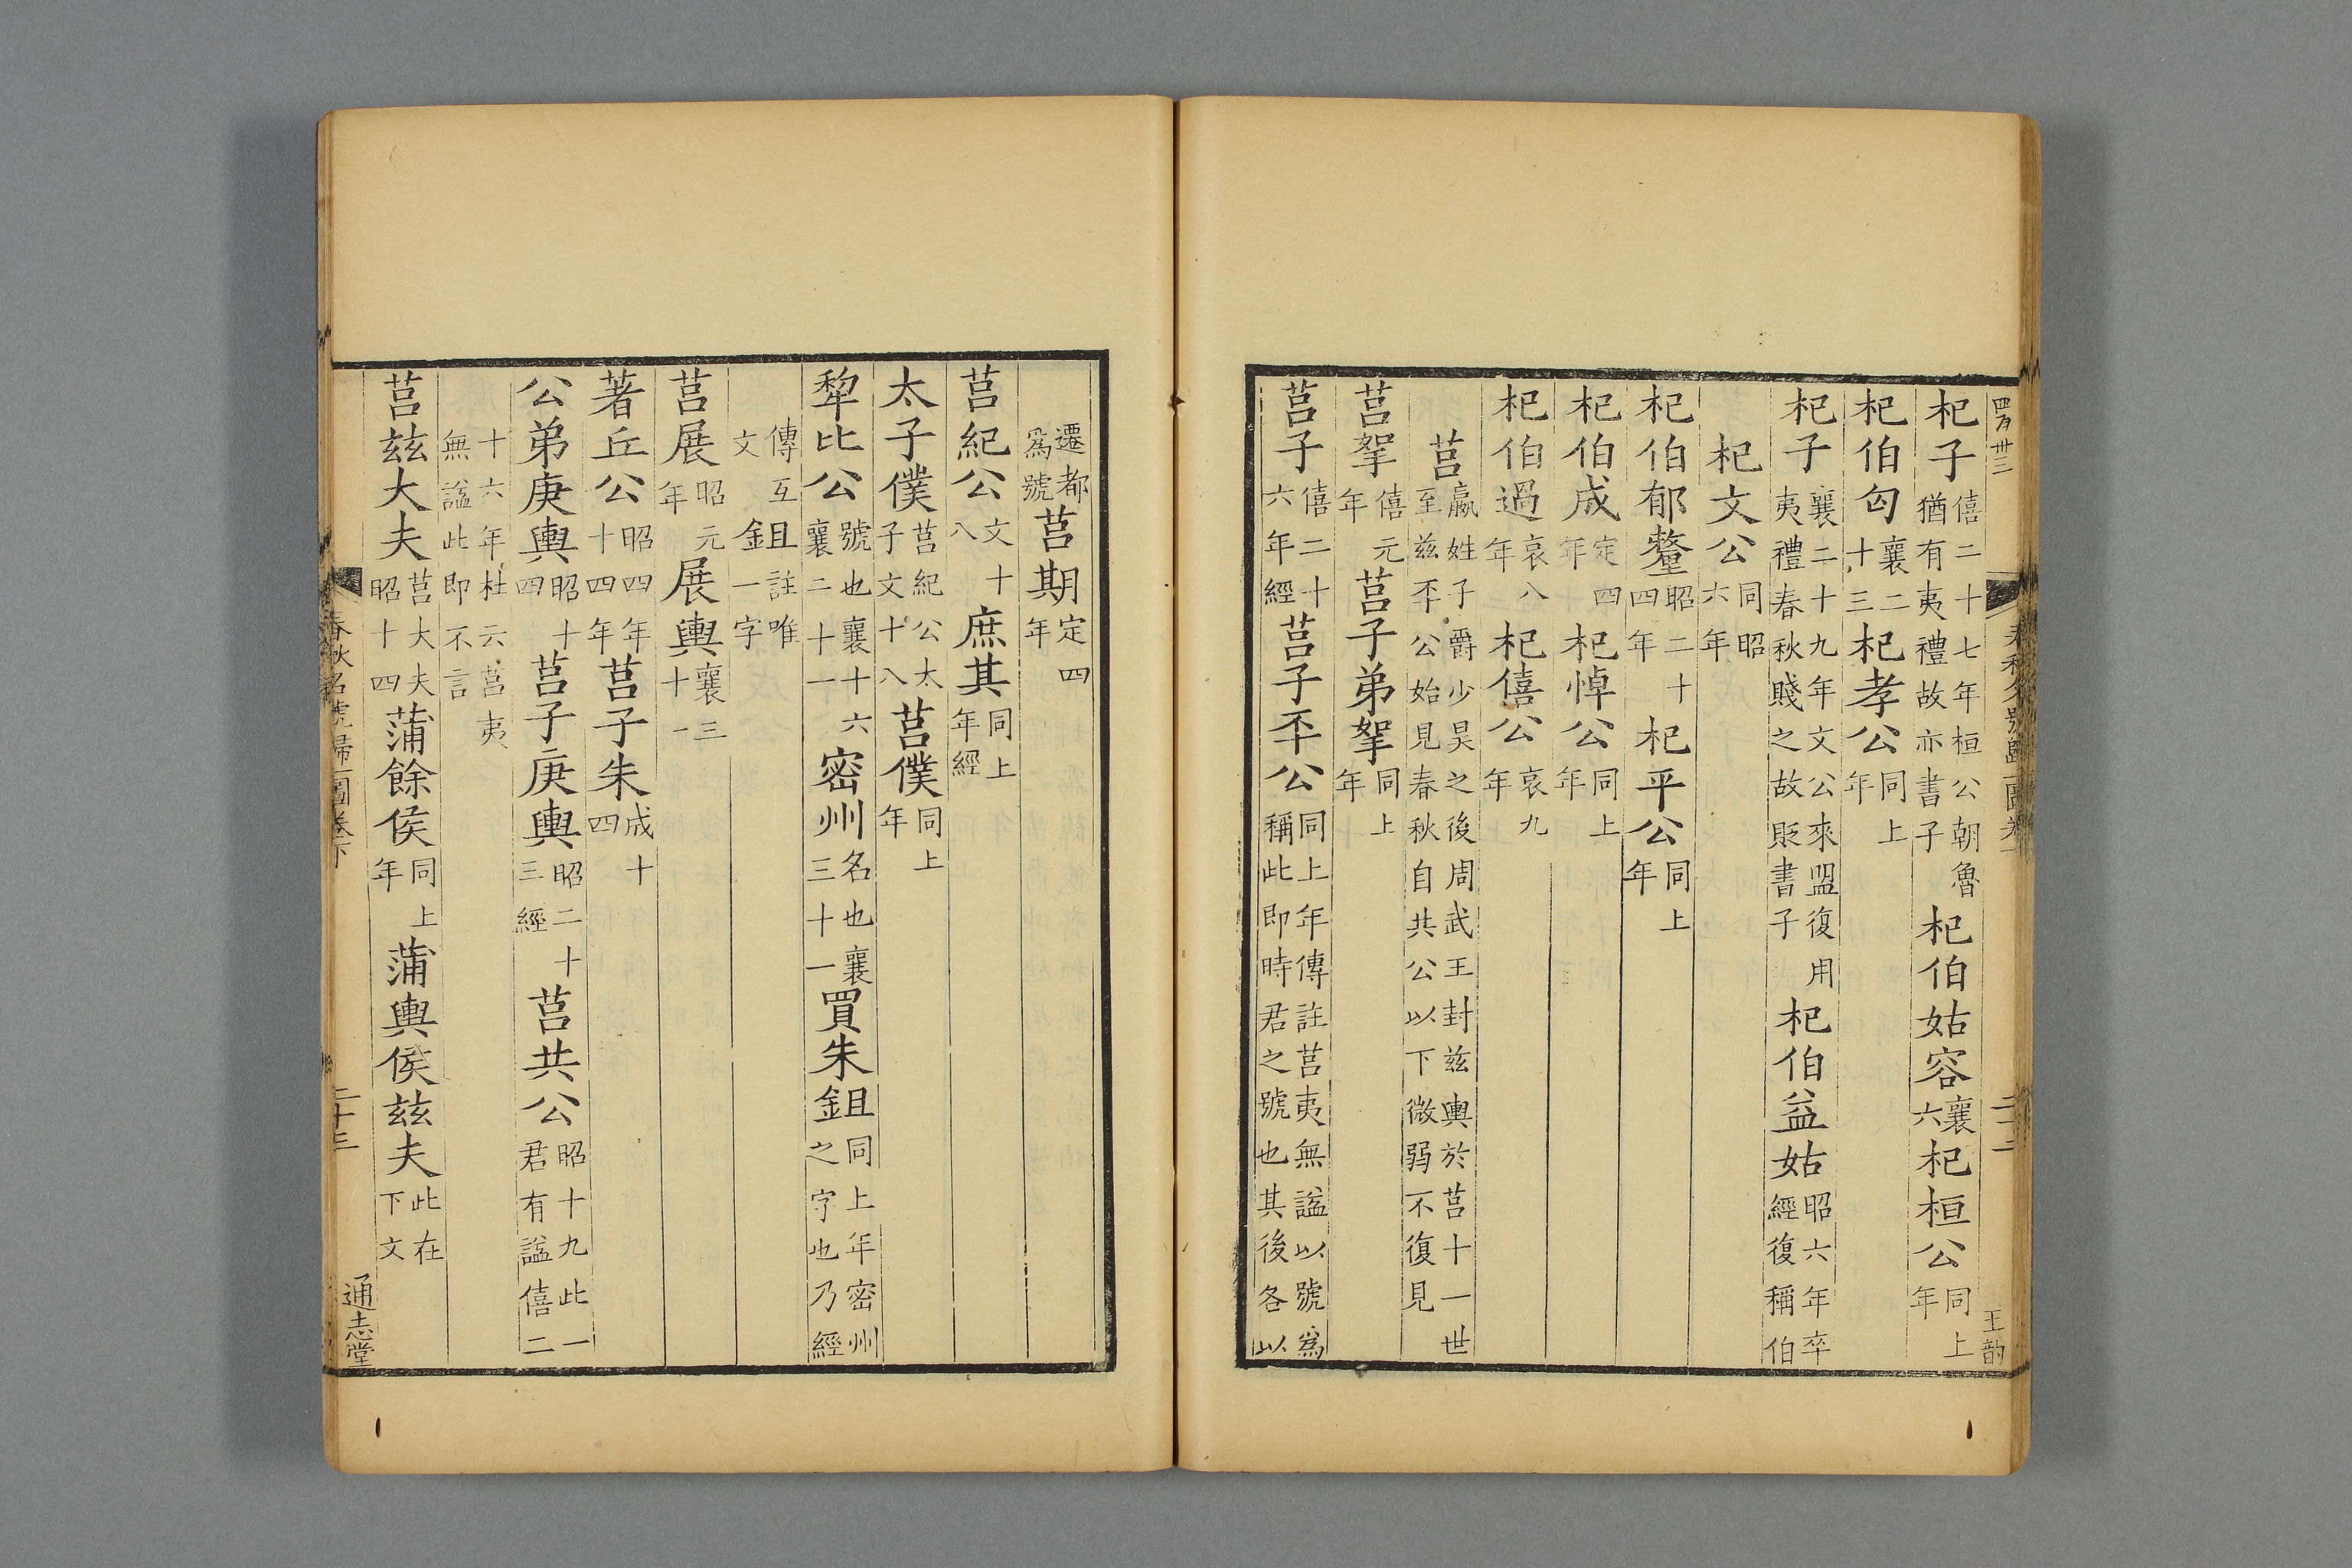 杞子僖二十七年桓公朝魯猶有夷禮故亦書子杞伯姑容襄六杞桓公同上年
杞伯匄襄二十三杞孝公同上年
杞子襄二十九年文公來盟復用夷禮春秋賤之故貶書子杞伯益姑昭六年卒經復稱伯
杞文公同昭六年
杞伯郁釐昭二十四年杞平公同上年
杞伯成定四年杞悼公同上年
杞伯過哀八年杞僖公哀九年
莒嬴姓子爵少昊之後周武王封兹輿於莒十一世至兹㔻公始見春秋自共公以下微弱不復見
莒挐僖元年莒子弟挐同上年
莒子僖二十六年經莒子㔻公同上年傳註莒夷無謚以號爲稱此即時君之號也其後各以
王韵
遷都爲號莒期定四年
莒紀公文十八庶其同上年經
太子僕莒紀公太子文十八莒僕同上年
犂比公號也襄十六襄二十一密州名也襄三十一買朱鉏同上年密州之字也乃經
傳互文鉏註唯一字
莒展昭元年展輿襄三十一
著丘公昭四年十四年莒子朱成十四
公弟庚輿昭十四莒子庚輿昭二十三經莒共公昭十九此一君有謚僖二
十六年杜云莒夷無謚此即不言
莒兹大夫莒大夫昭十四蒲餘侯同上年蒲輿侯兹夫此在下文
春秋名號歸一圖卷下
二十三
通志堂